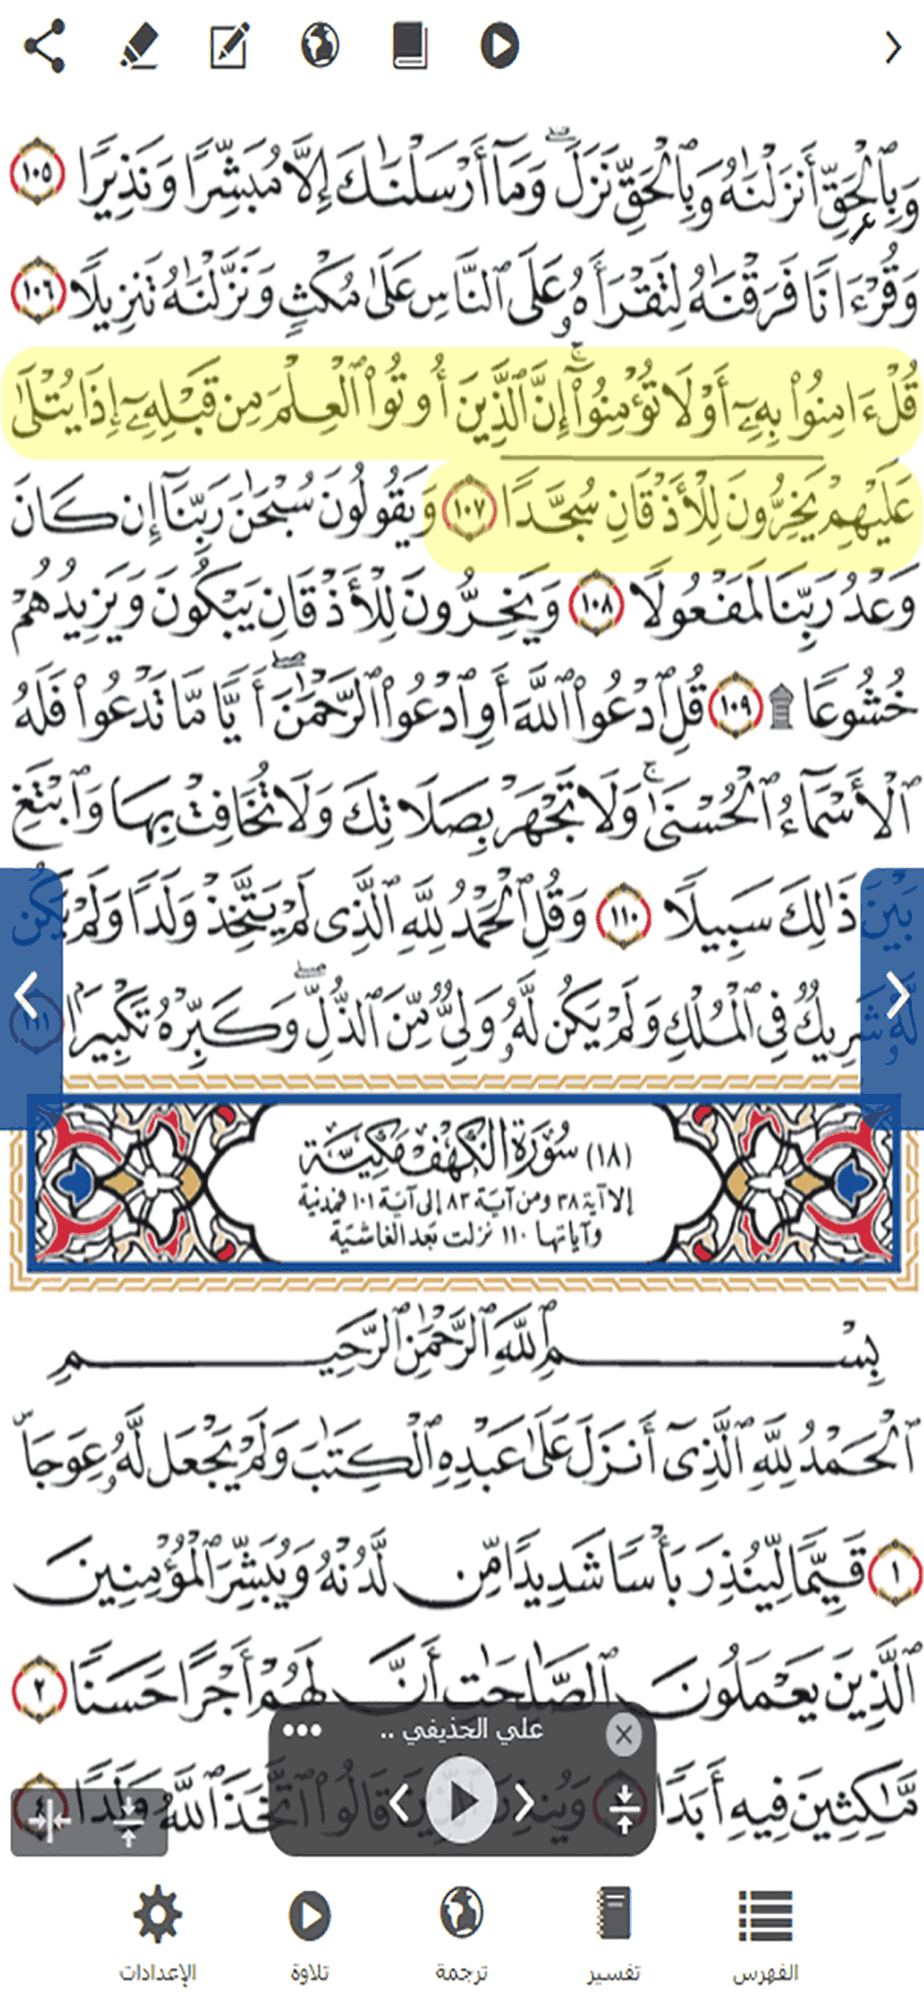 وَبِٱلْحَقِّ أَنزَلْنَٰهُ وَبِٱلْحَقِّ نَزَلَ ۗ وَمَآ أَرْسَلْنَٰكَ إِلَّا مُبَشِّرًا وَنَذِيرًا ١٠٥
وَقُرْءَانًا فَرَقْنَٰهُ لِتَقْرَأَهُۥ عَلَى ٱلنَّاسِ عَلَىٰ مُكْثٍ وَنَزَّلْنَٰهُ تَنزِيلًا ١٠٦
قُلْ ءَامِنُوا۟ بِهِۦٓ أَوْ لَا تُؤْمِنُوٓا۟ ۚ إِنَّ ٱلَّذِينَ أُوتُوا۟ ٱلْعِلْمَ مِن قَبْلِهِۦٓ إِذَا يُتْلَىٰ
عَلَيْهِمْ يَخِرُّونَ لِلْأَذْقَانِ سُجَّدًا ١٠٧ وَيَقُولُونَ سُبْحَٰنَ رَبِّنَآ إِن كَانَ
وَعْدُ رَبِّنَا لَمَفْعُولًا ١٠٨ وَيَخِرُّونَ لِلْأَذْقَانِ يَبْكُونَ وَيَزِيدُهُمْ
خُشُوعًا ۩ ١٠٩ قُلِ ٱدْعُوا۟ ٱللَّهَ أَوِ ٱدْعُوا۟ ٱلرَّحْمَٰنَ ۖ أَيًّا مَّا تَدْعُوا۟ فَلَهُ
ٱلْأَسْمَآءُ ٱلْحُسْنَىٰ ۚ وَلَا تَجْهَرْ بِصَلَاتِكَ وَلَا تُخَافِتْ بِهَا وَٱبْتَغِ
بَيْنَ ذَٰلِكَ سَبِيلًا ١١٠ وَقُلِ ٱلْحَمْدُ لِلَّهِ ٱلَّذِى لَمْ يَتَّخِذْ وَلَدًا وَلَمْ يَكُن
لَّهُۥ شَرِيكٌ فِى ٱلْمُلْكِ وَلَمْ يَكُن لَّهُۥ وَلِىٌّ مِّنَ ٱلذُّلِّ ۖ وَكَبِّرْهُ تَكْبِيرًۢا ١١١
(١٨) سُورَةُ الكَهْفِ مَكِيَّة
إلا آية ٣٨ ومن آية ٨٣ إلى آية ١٠١ فمدنية
وآياتها ١١٠ نزلت بعد الغاشية
بِسْمِ ٱللَّهِ ٱلرَّحْمَٰنِ ٱلرَّحِيمِ
ٱلْحَمْدُ لِلَّهِ ٱلَّذِىٓ أَنزَلَ عَلَىٰ عَبْدِهِ ٱلْكِتَٰبَ وَلَمْ يَجْعَل لَّهُۥ عِوَجَا ۜ
١ قَيِّمًا لِّيُنذِرَ بَأْسًا شَدِيدًا مِّن لَّدُنْهُ وَيُبَشِّرَ ٱلْمُؤْمِنِينَ
ٱلَّذِينَ يَعْمَلُونَ ٱلصَّٰلِحَٰتِ أَنَّ لَهُمْ أَجْرًا حَسَنًا ٢
علي الحذيفي ..
مَّٰكِثِينَ فِيهِ أَبَدًا ٣ وَيُنذِرَ ٱلَّذِينَ قَالُوا۟ ٱتَّخَذَ ٱللَّهُ وَلَدًا ٤
الفهرس
تفسير
ترجمة
تلاوة
الإعدادات